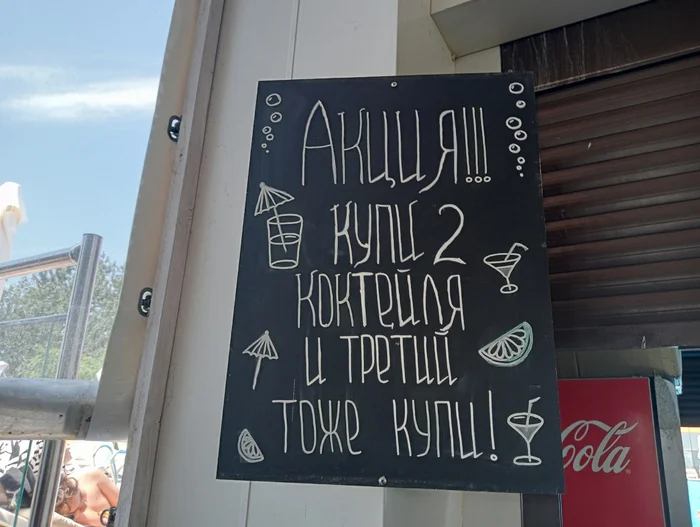 Акция!!!
купи 2
коктейля
и третий
тоже купи!
Cola